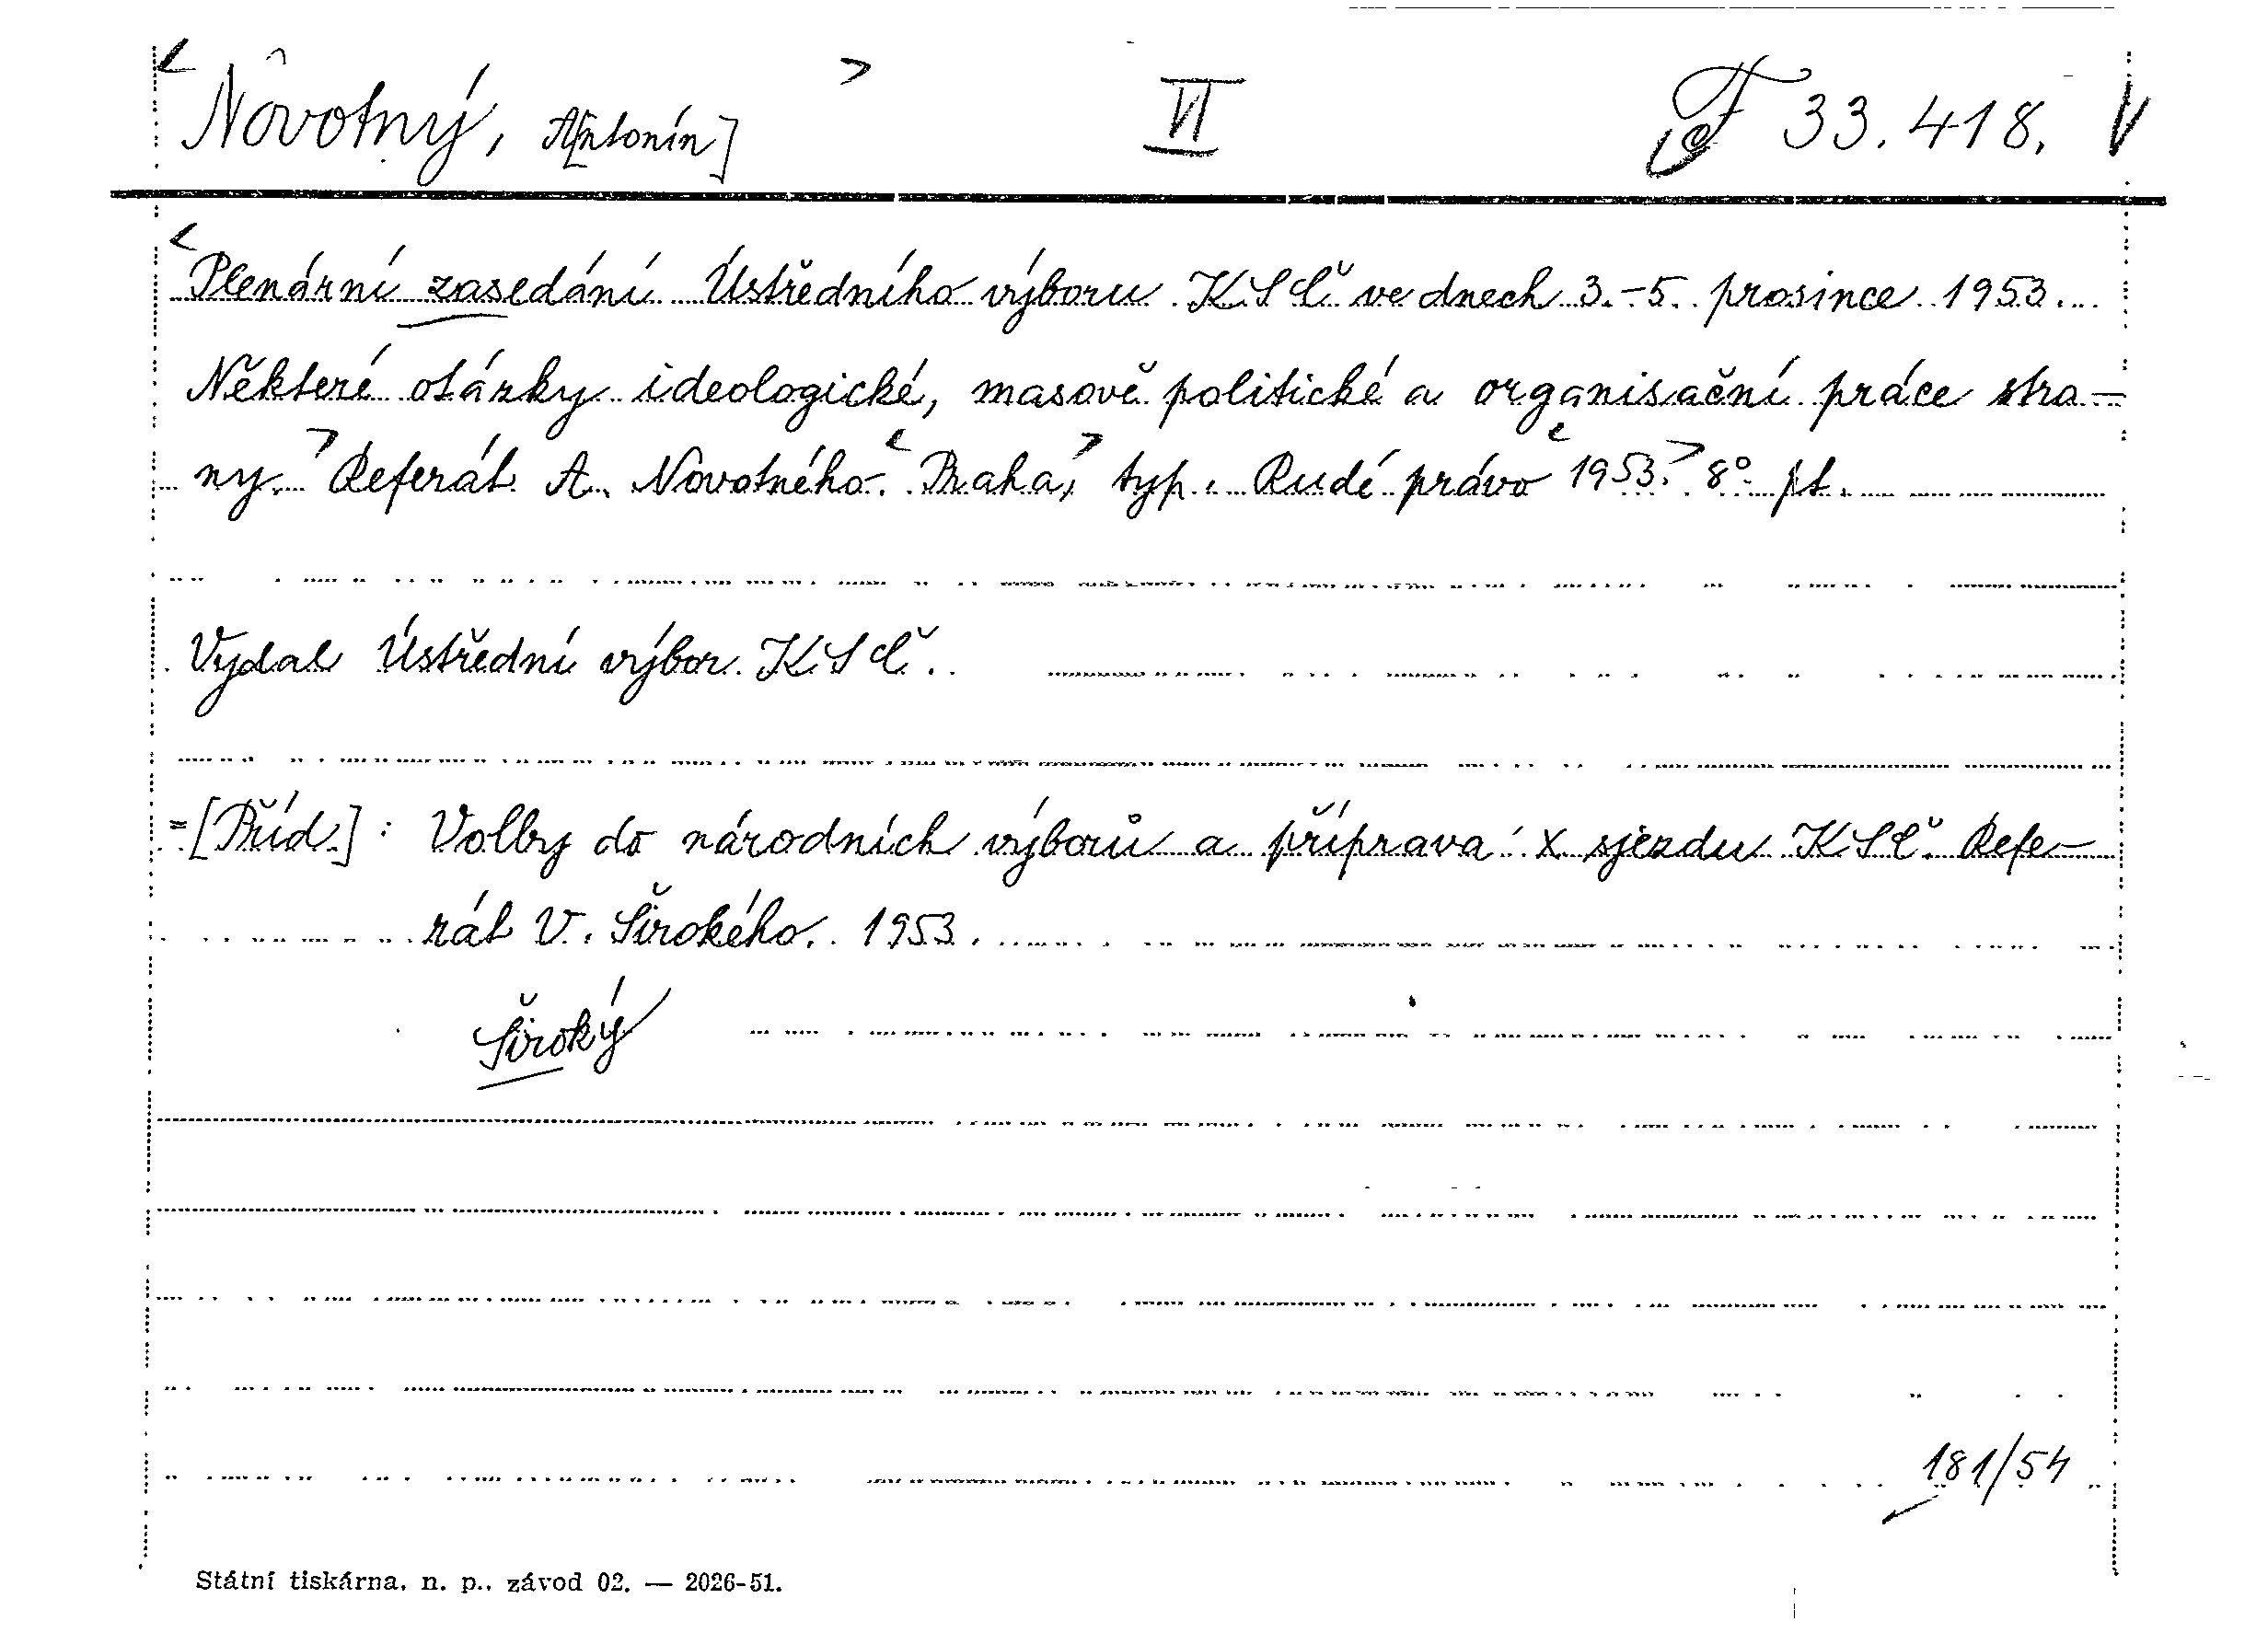 Novotný, A[ntonín] VI F 33.418. V
Plenární zasedání Ústředního výboru KSČ ve dnech 3.-5. prosince 1953.
Některé otázky ideologické, masově politické a organisační práce stra-
ny. Referát A. Novotného. Praha, typ. Rudé právo 1953. 8° pt.
Vydal Ústřední výbor KSČ.
=[Příd.]: Volby do národních výborů a příprava X. sjezdu KSČ. Refe-
rát V. Širokého. 1953.
Široký
181/54
Státní tiskárna, n. p., závod 02. — 2026-51.